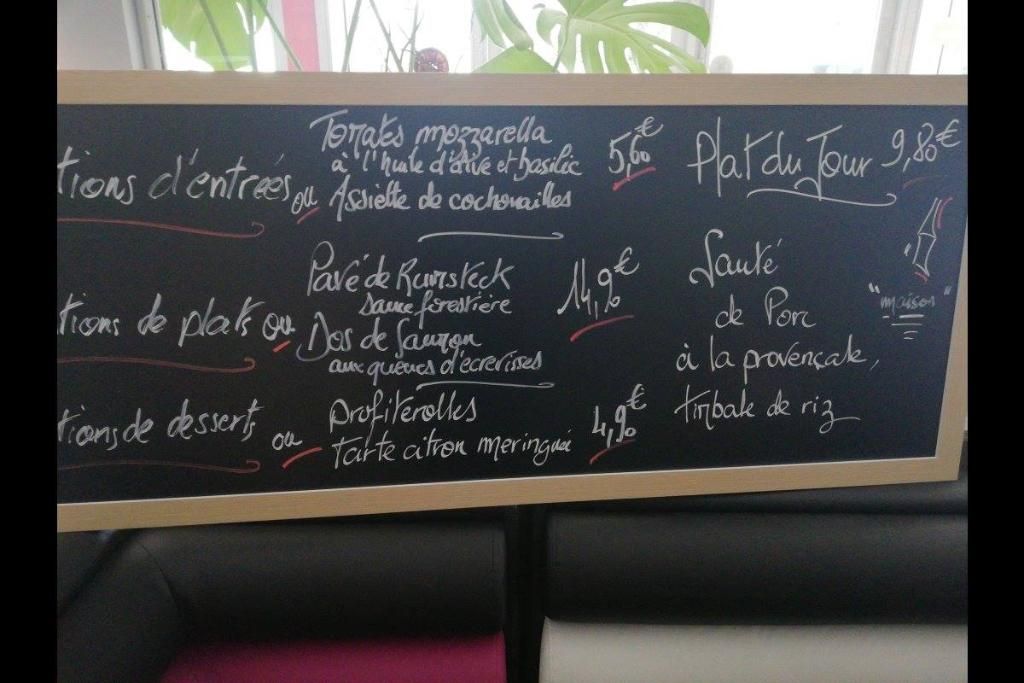 tions d'entrées ou
Tomates mozzarella
à l'huile d'olive et basilic
Assiette de cochonailles
5,60€
tions de plats ou
Pavé de Rumsteck
sauce forestière
Dos de Saumon
aux queues d'écrevisses
14,90€
tions de desserts ou
Profiterolles
Tarte citron meringuée
4,90€
Plat du Jour 9,80€
Sauté
de Porc
à la provençale,
timbale de riz
"maison"